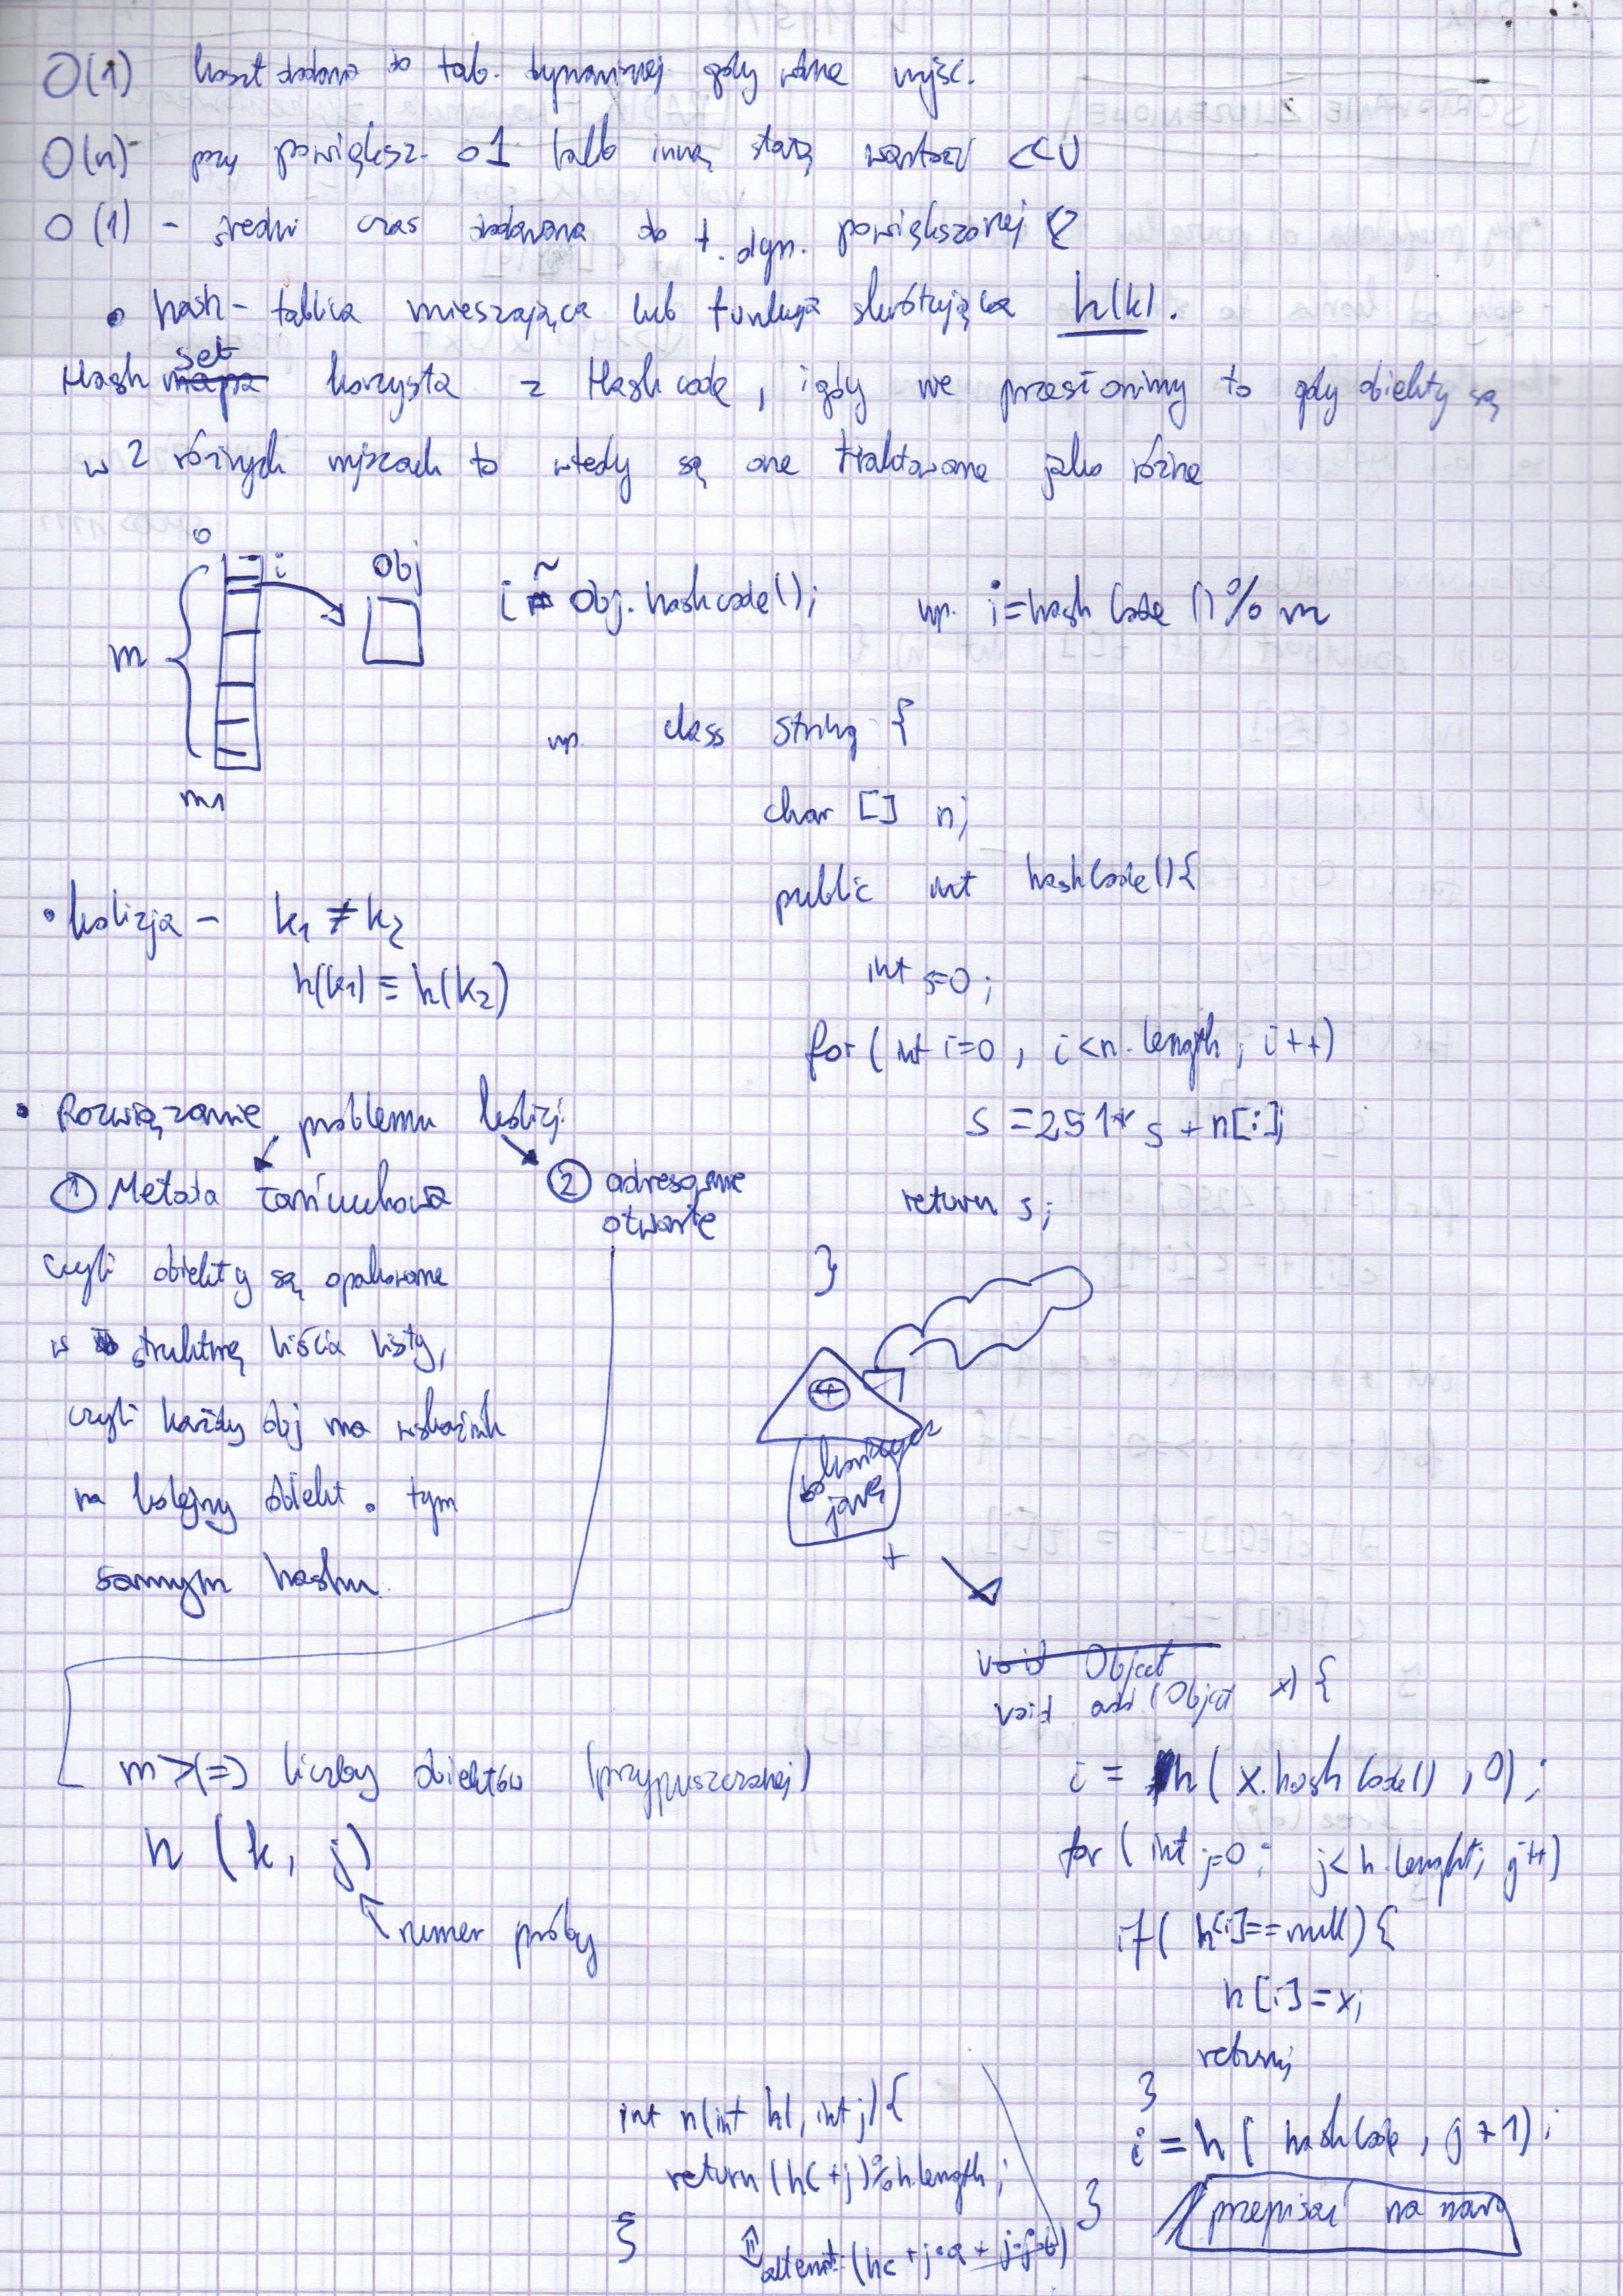 O(1) koszt dodania do tab. dynamicznej gdy wolne mijsc.
O(n) przy powiększ. o 1 lub inną stałą wartość <<U
O(1) - średni czas dodawana do t. dyn. powiększonej
• hash - tablica mieszająca lub funkcja skrótująca h(k).
Hash mapa set korzysta z Hash code, i gdy nie przesłonimy to gdy obiekty są
w 2 różnych mijscach to wtedy są one traktowane jako różne
0
i
Obj
m
m1
i ~ Obj.hashcode(); np. i = hash Code () % m
np. class String {
char [] n;
public int hashCode(){
int s=0;
for (int i=0, i<n.length; i++)
s = 251* s + n[i];
return s;
}
• kolizja - k1 ≠ k2
h(k1) ≡ h(k2)
• Rozwiązanie problemu kolizji
① Metoda łańcuchowa
② adresowanie
otwarte
czyli obiekty są opakowane
w strukturę liścia listy,
czyli każdy obj ma wskaźnik
na kolejny obiekt o tym
samym hashu.
+
javę
+
m >(=) liczby obiektów (przypuszczalnej)
h (k, j)
numer próby
void Object
void add (Object x) {
i = h( x.hashCode() , 0);
for (int j=0; j< h.lenght; j++)
if( h[i]==null) {
h[i]=x;
return;
}
i = h( hashCode, j+1);
}
przepisać na nowo
int h(int hc, int j) {
return (hc+j)%h.length;
}
alternat: (hc + j·a + j·j·b)